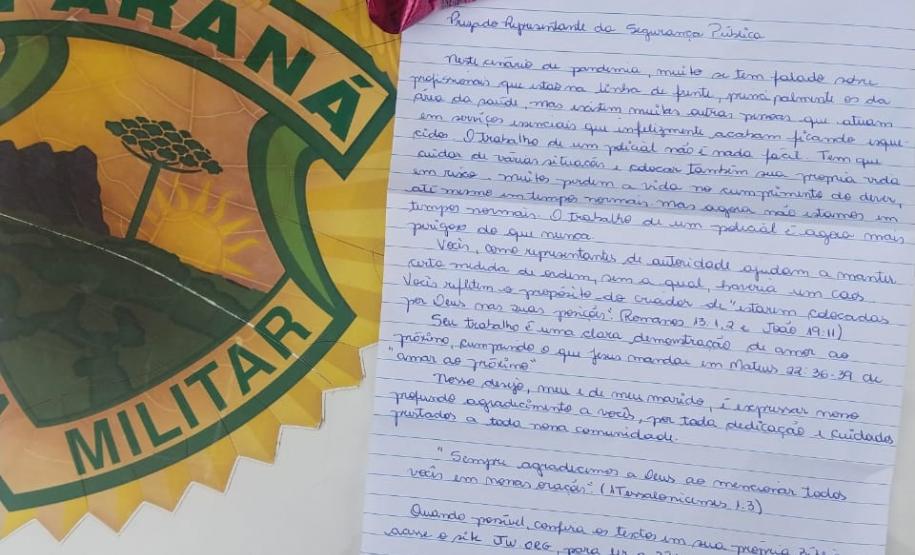 PARANÁ
MILITAR
Prezado Representante da Segurança Pública
Neste cenário de pandemia, muito se tem falado sobre
profissionais que estão na linha de frente, principalmente os da
área da saúde, mas existem muitas outras pessoas que atuam
em serviços essenciais que infelizmente acabam ficando esque-
cidos. O trabalho de um policial não é nada fácil. Tem que
cuidar de várias situações e colocar também sua propria vida
em risco. Muitos perdem a vida no cumprimento do dever,
até mesmo em tempos normais, mas agora não estamos em
tempos normais. O trabalho de um policial é agora mais
perigoso do que nunca.
Vocês, como representantes de autoridade ajudam a manter
certa medida de ordem, sem a qual, haveria um caos.
Vocês refletem o propósito do criador de "estarem colocadas
por Deus nas suas posições". (Romanos 13:1,2 e João 19:11)
Seu trabalho é uma clara demonstração de amor ao
próximo, cumprindo o que Jesus mandou em Mateus 22:36-39 de
"amar ao próximo"
Nosso desejo, meu e de meu marido, é expressar nosso
profundo agradecimento a vocês, por toda dedicação e cuidados
prestados a toda nossa comunidade.
"Sempre agradecemos a Deus ao mencionar todos
vocês em nossas orações". (1 Tessalonicenses 1:3)
Quando possível, confira os textos em sua própria
acesse o site JW.ORG, para